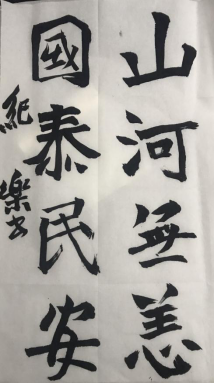 山河無恙
國泰民安
紀樂書